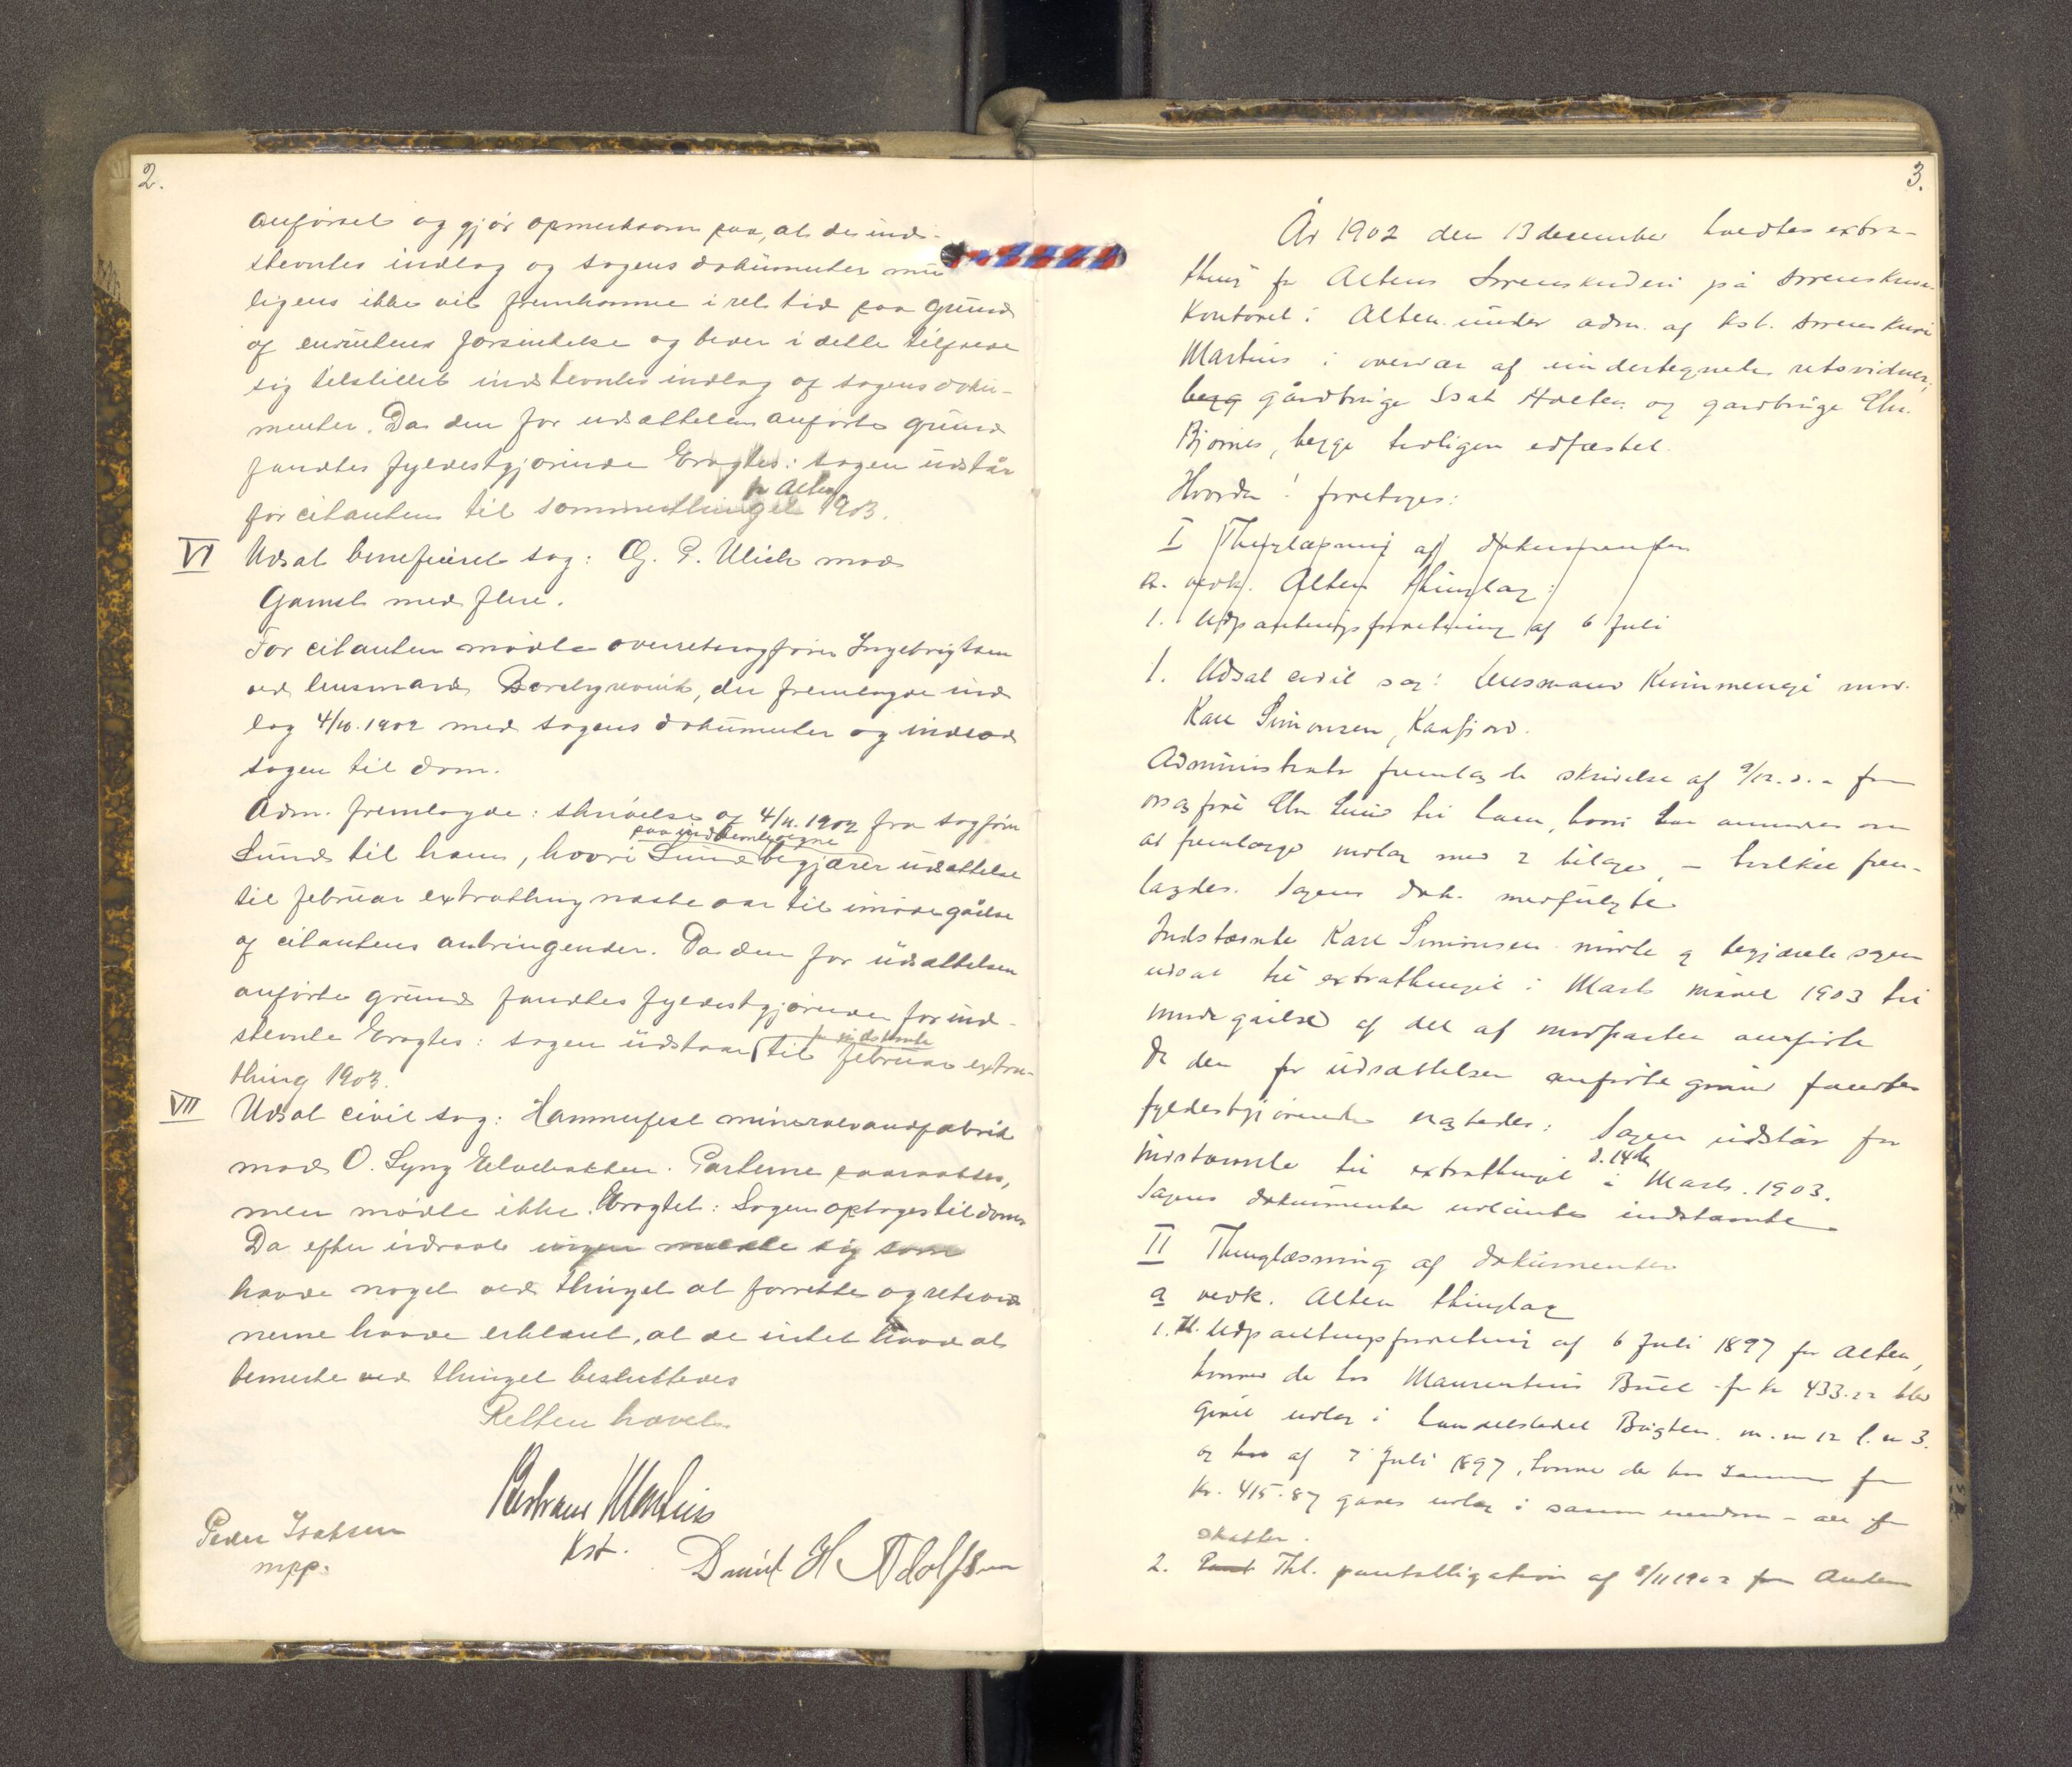 2.
anførsel og gjør opmerksom paa, at de ind-
stevntes indlæg og sagens dokumenter mu
ligens ikke vil fremkomme i ret tid paa grund
af enrutens forsinkelse og beder i dette tilfælde
sig tilstillet indstevntes indlæg og sagens doku-
menter. Da den for udsættelsen anførte grund
fandtes fyldestgjørende Eragtes: sagen udstår
for citanten til sommerthinget for Alten 1903.
VI Udsat beneficeret sag: G. P. Ulich mod
Gamst med flere.
For citanten mødte overretssagfører Ingebrigtsen
ved lensmand Borchgrevink, der fremlagde ind
læg 4/10.1902 med sagens dokumenter og indlod
sagen til dom.
Adm. fremlagde: skrivelse af 4/11.1902 fra sagfører
Lund til ham, hvori Lund paa indstevntes vegne begjærer udsættelse
til februar extrathing næste aar til imødegåelse
af citantens anbringender. Da den for udsættelsen
anførte grund fandtes fyldestgjørende for ind-
stevnte Eragtes: sagen udstaar for indstevnte til februar extra-
thing 1903.
VII Udsat civil sag: Hammerfest mineralvandfabrik
mod O. Lyng Elvebakken. Parterne paaraabtes,
men mødte ikke. Eragtet: Sagen optages til doms
Da efter udraab ingen meldte sig som
havde noget ved thinget at forrette og retsvid
nerne havde erklæret, at de intet havde at
bemerke ved thinget besluttedes
Retten hævet.
Bertrand Martius
Kst.
Peder Isaksen
mpp.
David H Adolfsen
3.
År 1902 den 13 desember holdtes extra-
thing for Altens Sorenskriveri på sorenskriver
kontoret i Alten under adm. af kst. sorenskriver
Martius i overvær af undertegnede retsvidner,
begg gårdbruger Isak Holten og gardbruger Chr.
Bjørnes, begge tidligere edfæstet.
Hvorda! foretoges:
I Thinglæsning af dokumenter
a. vedk. Alten thinglag:
1. Udpantningsforretning af 6 Juli
1. Udsat civil sag: Lensmand Kimmengi mod.
Karl Simonsen, Kaafjord.
Administrator fremlagde skrivelse af 9/12. d.a fra
orsagfører Chr Lund til ham, hvori han anmodes om
at fremlægge indlæg med 2 bilage, – hvilket frem-
lagdes. Sagens dok. medfulgte
Indstævnte Karl Simonsen mødte og begjærede sagen
udsat til extrathinget i Marts måned 1903 til
imødegåelse af det af modparten anførte
Da den for udsættelsen anførte grund fandtes
fyldestgjørende eragtedes: Sagen udstår for
indstævnte til extrathinget d. 14de i Marts. 1903.
Sagens dokumenter udlåntes indstævnte
II Thinglæsning af dokumenter
a vedk. Alten thinglag
1. Udpantningsforretning af 6 Juli 1897 for Alten,
hvorved der hos Maurentius Buck for kr 433.22 blev
givet udlæg i handelsstedet Bugten. m.nr 12 l.nr 3.
og hos af 7 Juli 1897, hvorved der hos samme for
kr. 415.87 gaves udlæg i samme eiendom – alt for
skatter.
2. Pant Thl. pantobligation af 8/11 1902 fra Anders